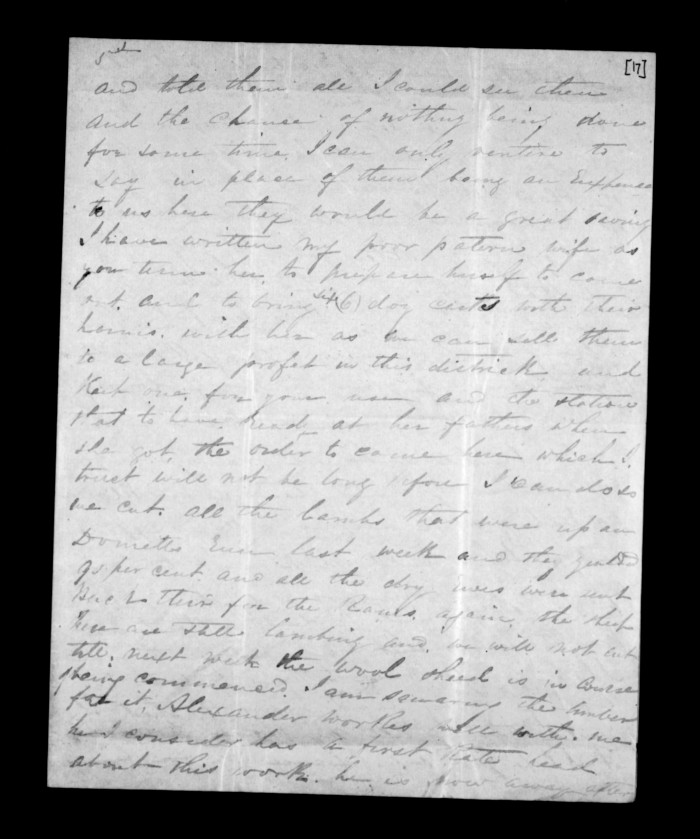 5
[17]
and told them all I could see them
and the chance of nothing being done
for some time. I can only venture to
say in place of them being an Expence
to us here they would be a great saving
I have written my poor wife as
you term her to prepare herself to come
out and to bring six (6) dog carts with their
harnis with her as we can sell them
to a large profit in this district and
Keep one for your use and the station
that to have ready at her fathers when
she got the order to come here which I
trust will not be long before I can do so
we cut all the lambs that were up on
last week and they
95 per cent and all the dry were sent
Back there for the Rams again, the sheep
here are still lambing and we will not cut
till next week the wool shead is in course
of being commenced. I am squaring the timber
for it, Alexander workes well with me
he I consider has a first Rate head
about this work. he is now away after